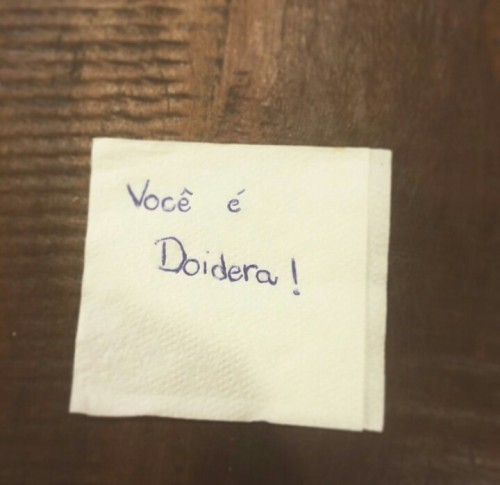 Você é
Doidera!